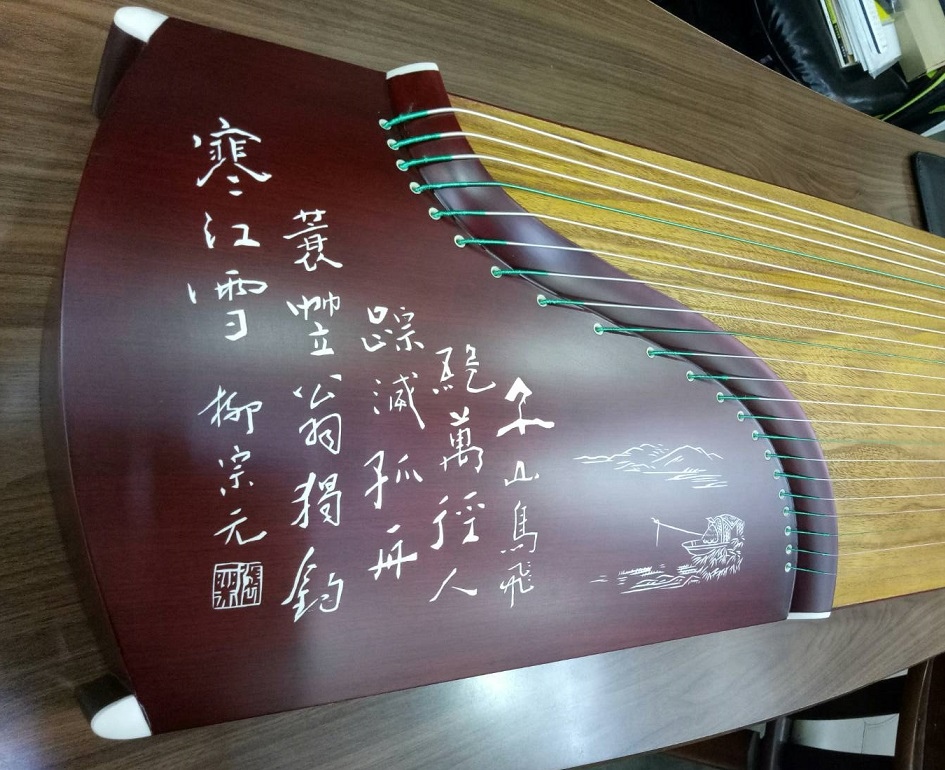 千山鳥飛
絕萬徑人
踪滅孤舟
蓑笠翁獨釣
寒江雪 柳宗元